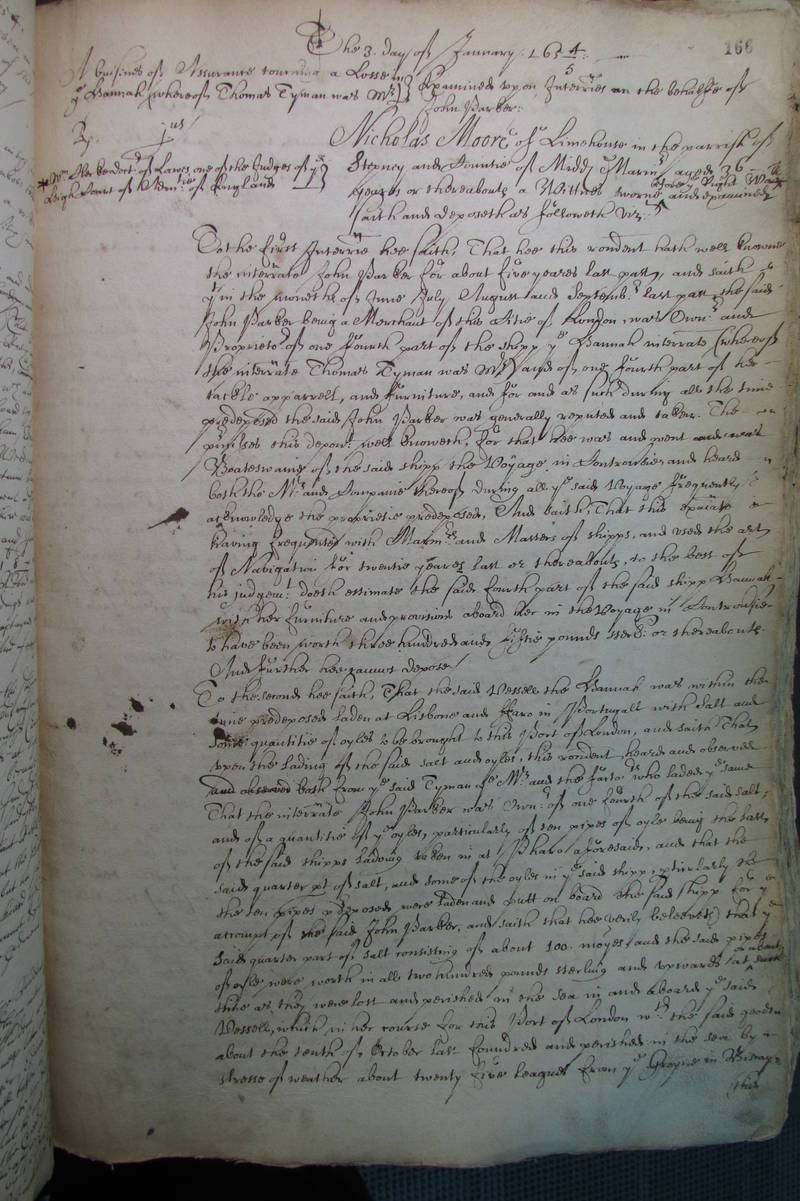 The 3. day of January. 1654:
166
A busines of Assurance touching a Losse in
ye Hannah (whereof Thomas Tyman was Mr)
Examined upon Interries on the behalfe of
John Parker:
Rp. jus
Nicholas Moore of Limehouse in the parrish of
of Lawes, one of the Judges of ye
high Court of of England
Stepney and Countie of Midd Marinr aged 36
yeares or thereabouts a Wittnes sworne and examined
before Right
saith and deposeth as followeth vizt
To the first Interrie hee saith, That hee this rendent hath well knowne
the interrate John Parker for about five yeares last past, and saith
yt in the moneths of June July August and Septemb.r last past the said
John Parker being a Merchant of this Citie of London was Own.r and
Proprietor of one fourth part of the shipp ye Hannah interrate (whereof
the interrate Thomas Tyman was Mr) and of one fourth part of her
tackle apparrell, and furniture, and for and as such during all the time
predeposed the said John Parker was generally reputed and taken. The
premises this depont well knoweth, for that hee was and went
Boateswaine of the said shipp the Voyage in Controversie and heard
both the Mr and Companie thereof during all ye said Voyage frequently
acknowledge the proprietie predeposed, And saith, That this
having frequented with Marinrs and Masters of shipps, and used the art
of Navigation for twentie yeares last or thereabouts, to the best of
his judgemt doeth estimate the said fourth part of the said shipp Hannah
with her furniture and provisions aboard her in the Voyage in Controversie
to have been worth three hundred and fiftie pounds sterl: or thereabouts.
And further hee cannot depose
To the second hee saith, That the said Vessell the Hannah was within the
time predeposed laden at Lisbone and ffaro in Portugall with salt and
some quantitie of oyles to be brought to this Port of London, and saith That
upon the lading of the said salt and oyles, this rendent heard and observed
and observed both from ye said Tyman ye Mr and the factors who laded ye same
That the interrate John Parker was Own.r of one fourth of the said salt,
and of a quantitie of ye oyles, particularly of ten pipes of oyle being the last
of the said shipps lading taken in at Pharo aforesaid, and that the
said quarter pt of salt, and some of the oyles in ye said shipp, ptirlarly
the ten pipes predeposed were laden and putt on board the said shipp for ye
accompt of the said John Parker, and saith that hee verily beleeveth that ye
said quarter part of salt consisting of about 100. moyes and the said pipes
of oyle were worth in all two hundred pounds sterling and upwards at
or about
time as they were lost and perished in the sea in and aboard ye said
Vessell, which in her course for this Port of London wth the said goods
about the tenth of October last foundred and perished in the sea by
stresse of weather about twenty five leagues from ye Groyne in
this